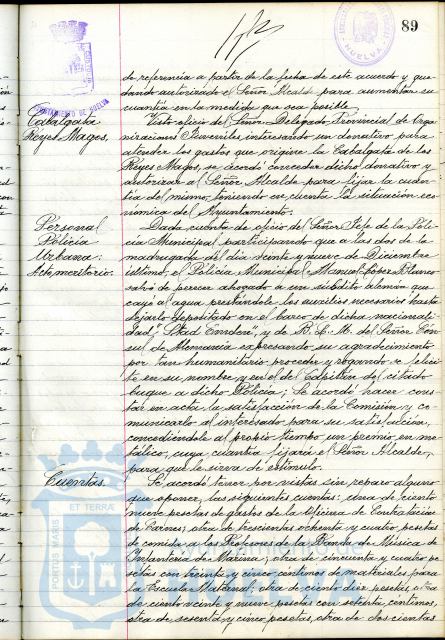 89
AYUNTAMIENTO DE HUELVA
HUELVA
de referencia a partir de la fecha de este acuerdo y que-
dando autorizado el Señor Alcalde para aumentar su
cuantía en la medida que sea posible.
Cabalgata
Reyes Magos.
Visto oficio del Señor Delegado Provincial de Orga-
nizaciones Juveniles interesando un donativo para
atender los gastos que origine la Cabalgata de los
Reyes Magos, se acordó conceder dicho donativo y
autorizar al Señor Alcalde para fijar la cuan-
tía del mismo, teniendo en cuenta la situación eco-
nómica del Ayuntamiento.
Personal
Policía
Urbana:
Acto meritorio.
Dada cuenta de oficio del Señor Jefe de la Poli-
cía Municipal participando que a las dos de la
madrugada del día veinte y nueve de Diciembre
último, el Policía Municipal Manuel López Blanco
salvó de perecer ahogado a un súbdito alemán que
cayó al agua prestándole los auxilios necesarios hasta
dejarlo depositado en el barco de dicha nacionali-
dad, "Stad Emden", y de B. L. M. del Señor Cón-
sul de Alemania expresando su agradecimiento
por tan humanitario proceder y rogando se felici-
te en su nombre y en el del Capitán del citado
buque a dicho Policía; Se acordó hacer cons-
tar en acta la satisfacción de la Comisión y co-
municarlo al interesado para su satisfacción,
concediéndole al propio tiempo un premio en me-
tálico, cuya cuantía fijará el Señor Alcalde,
para que le sirva de estímulo.
Cuentas.
Se acordó tener por vistas sin reparo alguno
que oponer, las siguientes cuentas: otra de ciento
nueve pesetas de gastos de la Oficina de Contratación
de Carnes; otra de trescientas ochenta y cuatro pesetas
de comida a los Profesores de la Banda de Música de
Infantería de Marina; otra de cincuenta y cuatro pe-
setas con treinta y cinco céntimos de materiales para
la Escuela Maternal; otra de ciento diez pesetas; otra
de ciento veinte y nueve pesetas con setenta céntimos;
otra de sesenta y cinco pesetas, otra de dos cientas
PORTUS MARIS
ET TERRAE